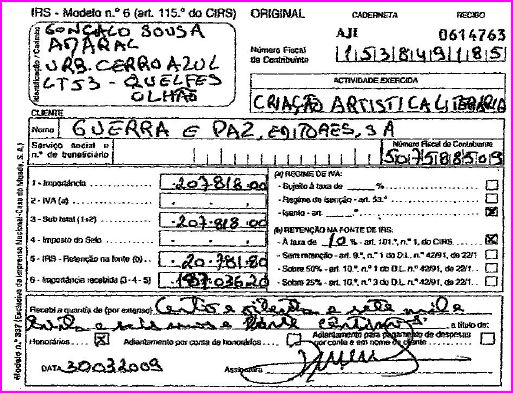 IRS - Modelo n.º 6 (art. 115.º do CIRS)
ORIGINAL
CADERNETA
RECIBO
AJI
0614763
GONÇALO SOUSA
AMARAL
URB. CERRO AZUL
LT53 - QUELFES
OLHÃO
Identificação / Carimbo
Número Fiscal
de Contribuinte
153849185
ACTIVIDADE EXERCIDA
CRIAÇÃO ARTISTICA LITERÁRIA
CLIENTE
Nome GUERRA E PAZ, EDITORES, S A
Serviço social e
n.º de beneficiário
Número Fiscal de Contribuinte
507588509
1 - Importância 207.818.00
2 - IVA (a)
3 - Sub total (1+2) 207.818.00
4 - Imposto do Selo
5 - IRS - Retenção na fonte (b) 20.781.80
6 - Importância recebida (3-4-5) 187.036.20
(a) REGIME DE IVA:
- Sujeito à taxa de ____%
- Regime de isenção - art. 53.º
- Isento - art.
(b) RETENÇÃO NA FONTE DE IRS:
- À taxa de 10 % - art. 101.º, n.º 1, do CIRS
- Sem retenção - art. 9.º, n.º 1 do D.L. n.º 42/91, de 22/1
- Sobre 50% - art. 10.º, n.º 1 do D.L. n.º 42/91, de 22/1
- Sobre 25% - art. 10.º, n.º 3 do D.L. n.º 42/91, de 22/1
Recebi a quantia de (por extenso) Cento e oitenta e sete mil e
trinta e seis euros e vinte cêntimos a título de:
Honorários
Adiantamento por conta de honorários
Adiantamento para pagamento de despesas
por conta e em nome do cliente
DATA 30032009
Assinatura
Modelo n.º 337 (Exclusivo da Imprensa Nacional-Casa da Moeda, S. A.)